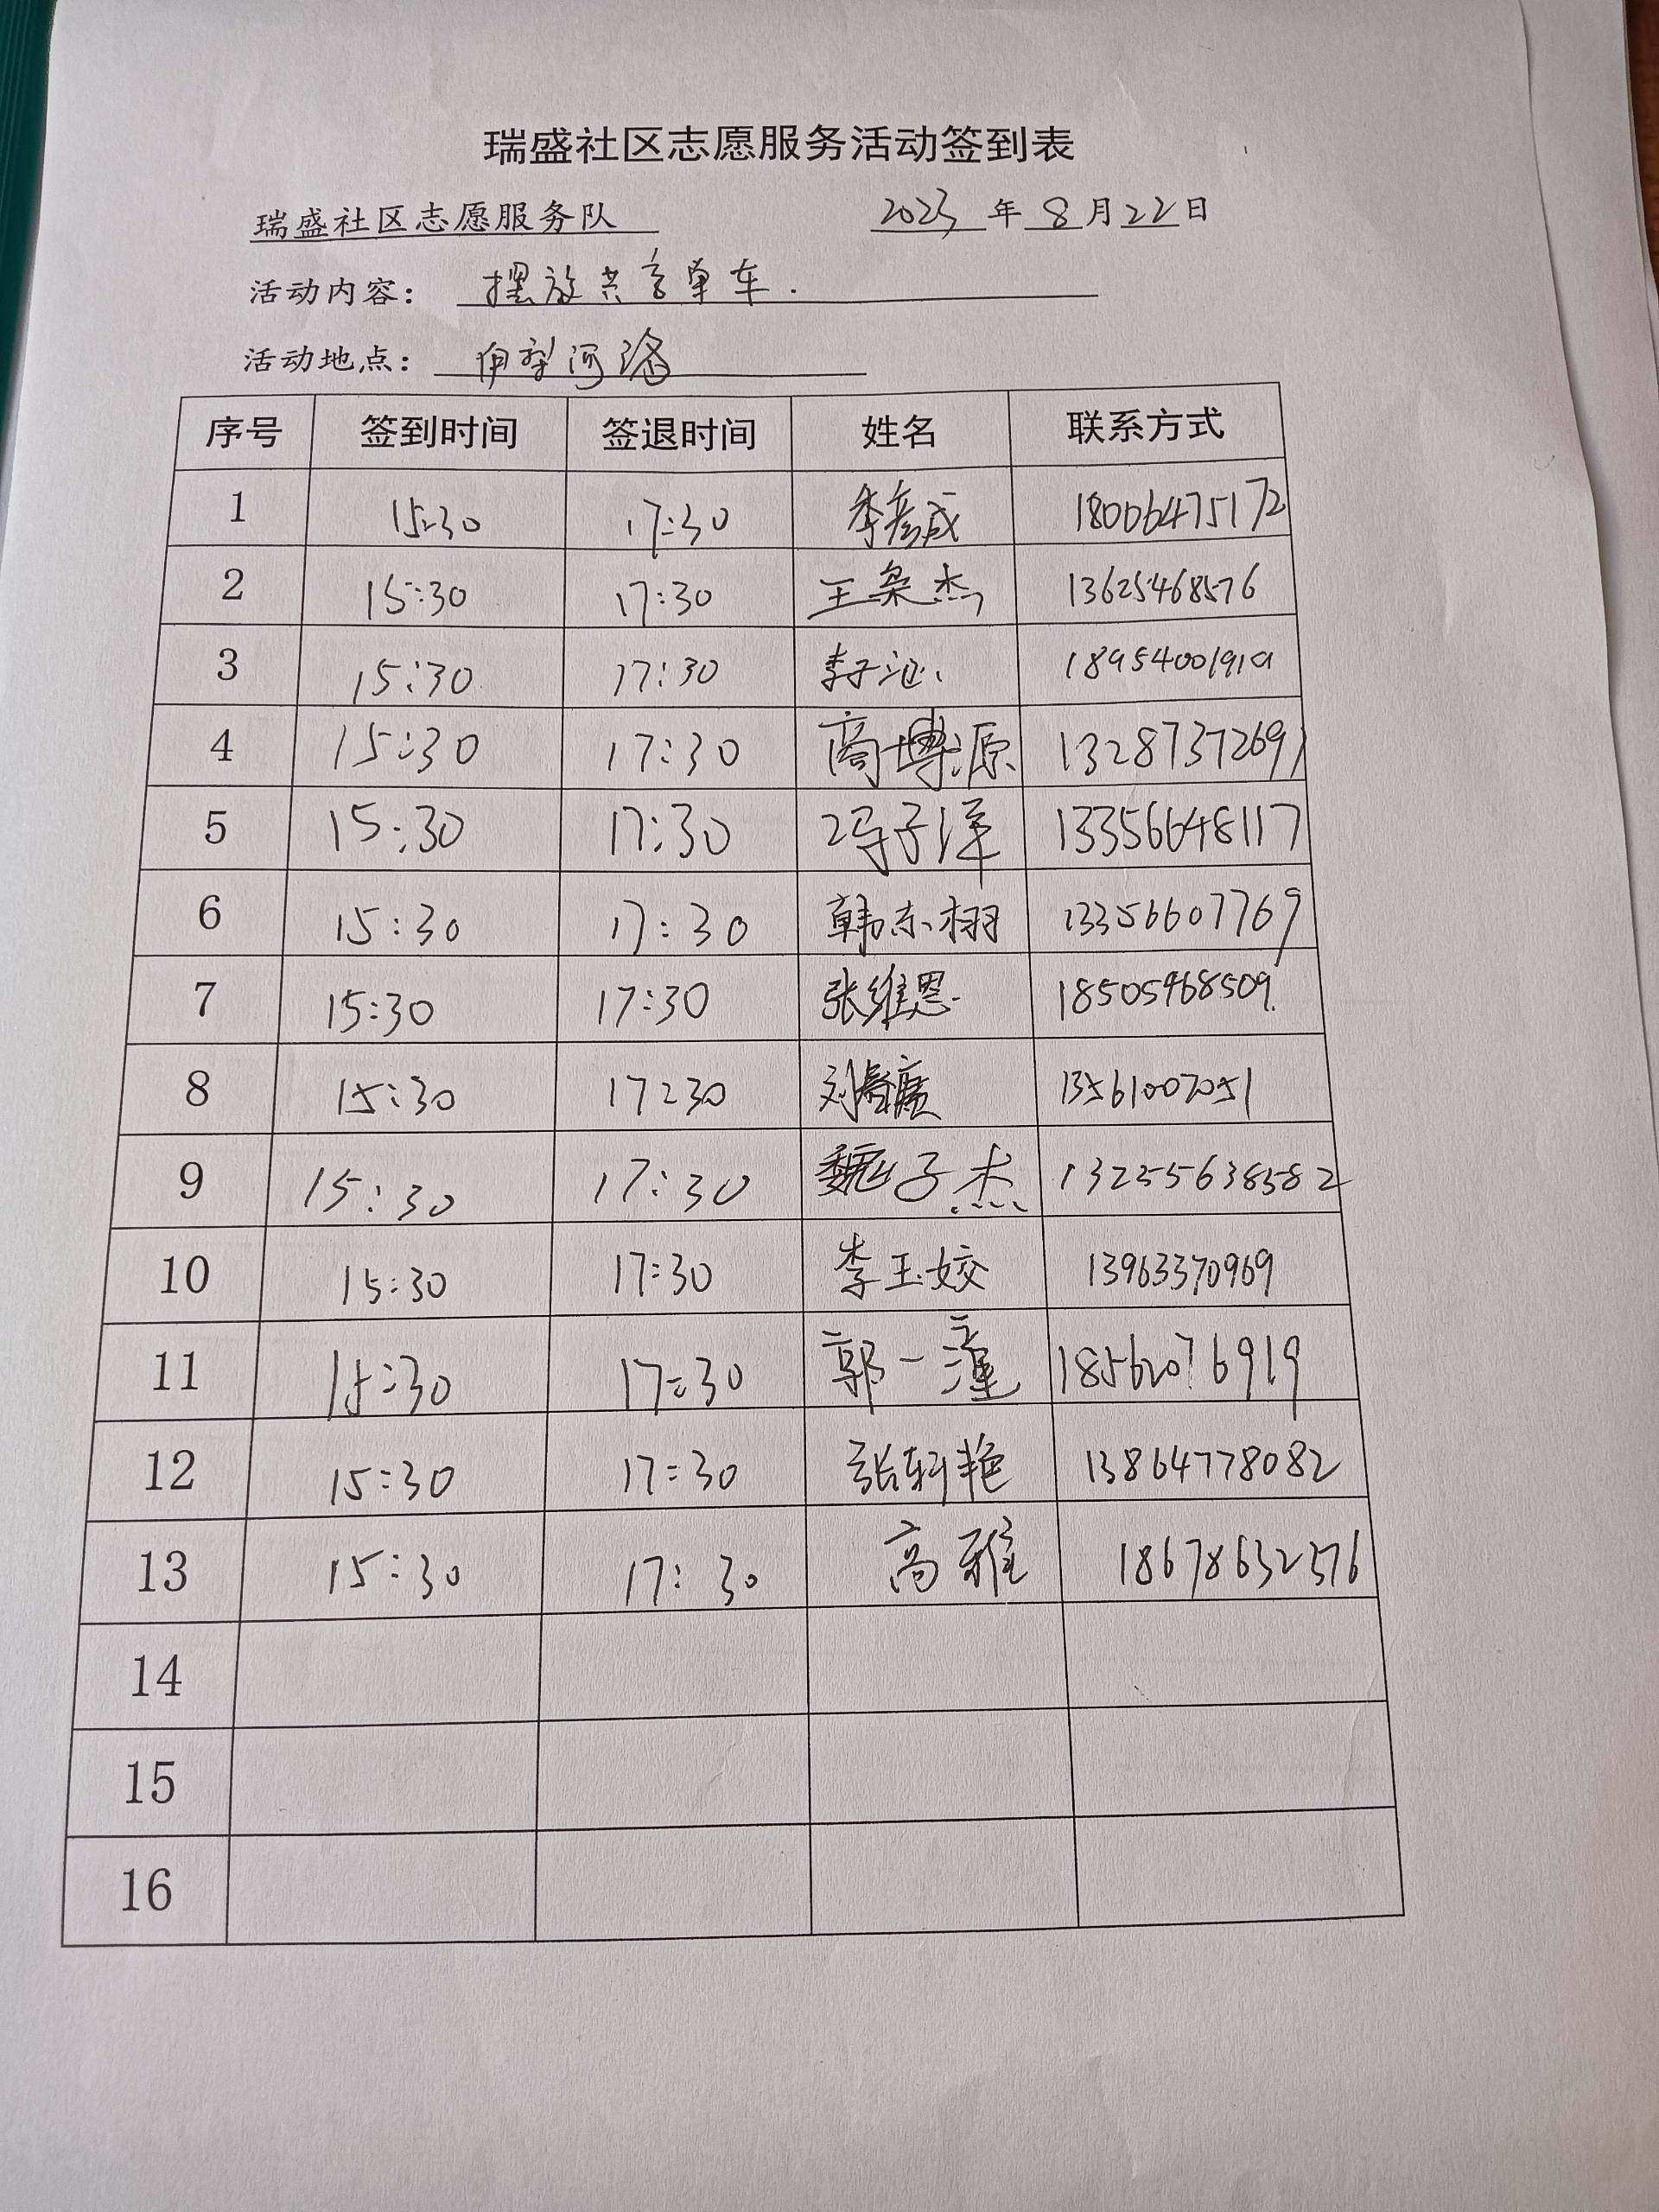 瑞盛社区志愿服务活动签到表
瑞盛社区志愿服务队 2023 年 8 月 22 日
活动内容： 摆放共享单车.
活动地点： 伊犁河路
序号 签到时间 签退时间 姓名 联系方式
1 15:30 17:30 李彦成 18006475172
2 15:30 17:30 王枭杰 13625468576
3 15:30 17:30 李子 18954001919
4 15:30 17:30 商博源 13287372691
5 15:30 17:30 冯子洋 13356648117
6 15:30 17:30 韩东栩 13356607769
7 15:30 17:30 张维恩 18505468509
8 15:30 17:30 刘 13561007051
9 15:30 17:30 魏子杰 13255638582
10 15:30 17:30 李玉姣 13963370969
11 15:30 17:30 郭一潼 18562076919
12 15:30 17:30 张轲艳 13864778082
13 15:30 17:30 高雅 18678632376
14
15
16